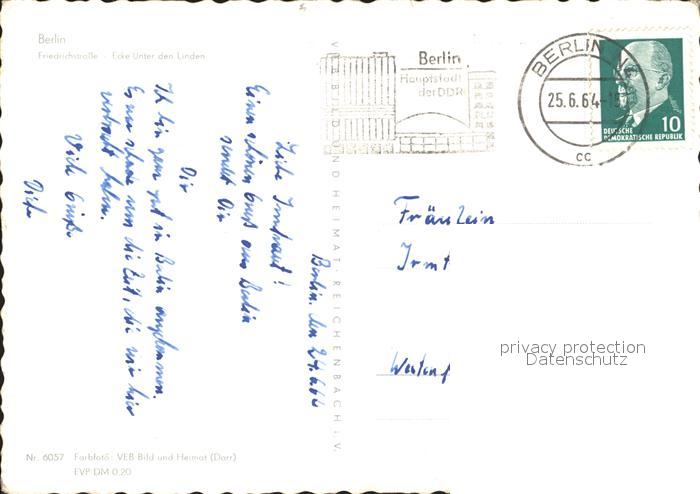 Berlin
Friedrichstraße - Ecke Unter den Linden
Berlin, den 24.6.64
Liebe Irmtraut!
Einen schönen Gruß aus Berlin
sendet Dir
Dir
Ich bin ganz gut in Berlin angekommen.
Es war schade um die Zeit, die wir hier
verbracht haben.
Viele Grüße
Nr. 6057 Farbfoto: VEB Bild und Heimat (Darr)
EVP DM 0,20
VEB BILD UND HEIMAT · REICHENBACH i. V.
Berlin
Hauptstadt
der DDR
BERLIN N
25.6.64
cc
10
DEUTSCHE
DEMOKRATISCHE REPUBLIK
Fräulein
Irmt
privacy protection
Datenschutz